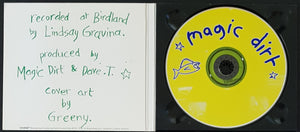 recorded at Birdland
by Lindsay Gravina.
produced
by
Magic Dirt & Dave.T.
cover art
by
Greeny.
magic dirt